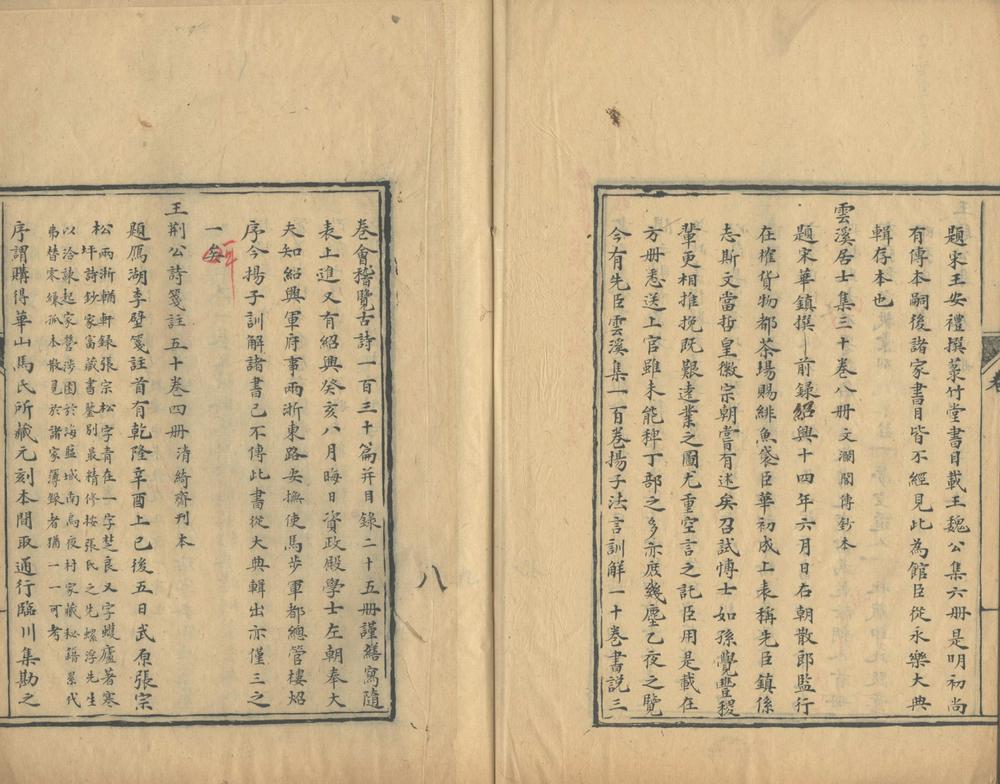 題宋王安禮撰菉竹堂書目載王魏公集六册是明初尚
有傳本嗣後諸家書目皆不經見此為館臣從永樂大典
輯存本也
雲溪居士集三十卷八册文瀾閣傳鈔本
題宋華鎮撰前錄紹興十四年六月日右朝散郎監行
在榷貨物都茶場賜緋魚袋臣華初成上表稱先臣鎮係
志斯文當哲皇徽宗朝嘗有述矣召試博士如孫覺豐稷
輩更相推挽既艱遠業之圖尤重空言之託臣用是載在
方册悉送上官雖未能稗丁部之多亦庶幾塵乙夜之覽
今有先臣雲溪集一百卷揚子法言訓解一十卷書説三
卷會稽覽古詩一百三十篇并目錄二十五册謹繕寫隨
表上進又有紹興癸亥八月晦日資政殿學士左朝奉大
夫知紹興軍府事兩浙東路安撫使馬步軍都總管樓炤
序今揚子訓解諸書已不傳此書從大典輯出亦僅三之
一矣
王荊公詩箋註五十卷四册清綺齋刊本
題雁湖李壁箋註首有乾隆辛酉上巳後五日武原張宗
松兩浙輶軒錄張宗松字青在一字楚良又字蠖廬著寒
坪詩鈔家富藏書鑒别最精侄按張氏之先螺浮先生
以洽諫起家營涉園於海鹽城南烏夜村家藏秘籍累代
弗替宋縑孤本散見於諸家簿錄者猶一一可考
序謂購得華山馬氏所藏元刻本間取通行臨川集勘之
八